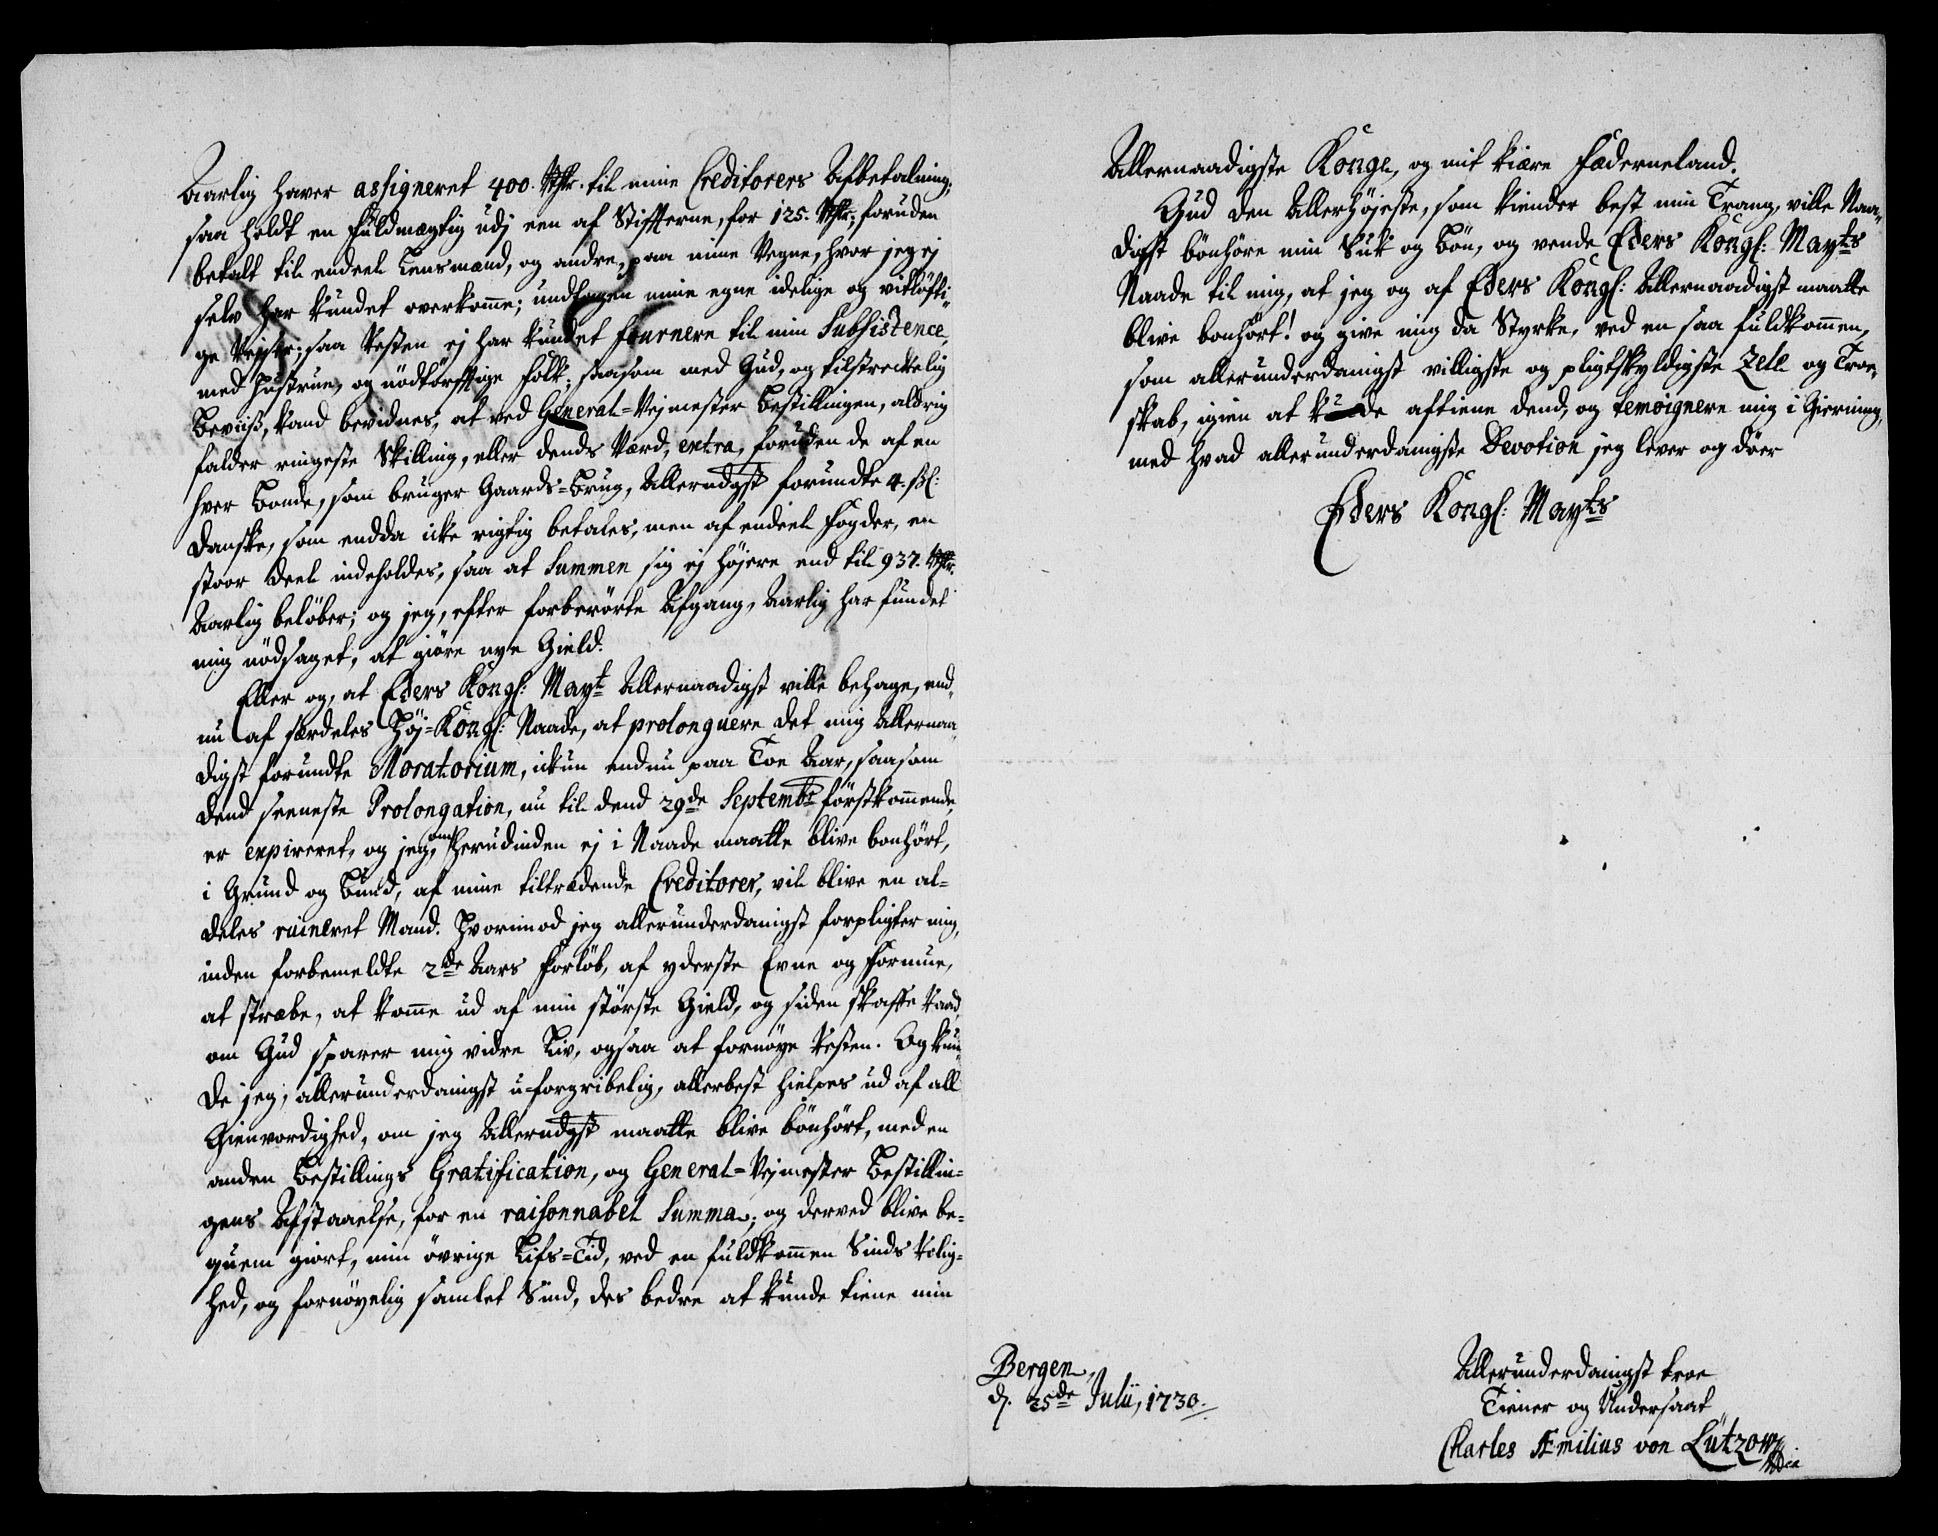 Aarlig haver assigneret 400. Rdlr. til mine Creditorers Afbetalning;
saa holdt en Fuldmægtig udj een af Stifterne, for 125. Rdlr; foruden
betalt til endeel Lensmænd, og andre, paa mine Vegne, hvor jeg ej
selv har kundet overkome; undtagen mine egne idelige og vitløfti-
ge Rejser; saa Resten ej har kundet fournere til min Subsistence,
med Hustrue, og nødtørftige Folk; saasom med Gud, og tilstreckelig
Beviis, kand bevidnes, at ved General-Vejmester Bestillingen, aldrig
falder ringeste Skilling, eller dends Værd, extra, foruden de af en
hver Bonde, som bruger Gaards-Brug, Allerndgst forundte 4. ßl:
Danske, som endda icke rigtig betales, men af endeel Fogder, en
stoor Deel indeholdes, saa at Summen sig ej højere end til 937. Rdlr.
Aarlig beløber; og jeg, efter forberørte Afgang, Aarlig har fundet
mig nødsaget, at giøre nye Gield.
Eller og, at Eders Kongl: Mayt Allernaadigst ville behage, end-
nu af særdeles Høj-Kongl: Naade, at prolonguere det mig Allernaa-
digst forundte Moratorium, ickun endnu paa Toe Aar, saasom
dend seeneste Prolongation, nu til dend 29de Septembr førstkommende,
er expireret, og jeg, om herudinden ej i Naade maatte blive bønhørt,
i Grund og Bund, af mine tiltrædende Creditorer, vil blive en al-
deles ruineret Mand. Hvorimod jeg allerunderdanigst forpligter mig,
inden forbemeldte 2de Aars Forløb, af yderste Evne og Formue,
at stræbe, at kome ud af min største Gield, og siden skaffe Raad,
om Gud sparer mig vidre Liv, ogsaa at fornøye Resten. Og kun-
de jeg, allerunderdanigst u-forgribelig, allerbest hielpes ud af all
Gienvordighed, om jeg Allerndgst maatte blive bønhørt, med en
anden Bestillings Gratification, og General-Vejmester Bestillin-
gens Afstaaelse, for en raisonnabel Summa; og derved blive be-
quem giort, min øvrige Lifs-Tid, ved en fuldkommen Sinds Rolig-
hed, og fornøyelig samlet Sind, des bedre at kunde tiene min
Allernaadigste Konge, og mit kiære Fæderneland.
Gud den Allerhøjeste, som kiender best min Trang, ville Naa-
digst bønhøre min Suk og Bøn, og vende Eders Kongl: Mayts
Naade til mig, at jeg og af Eders Kongl: Allernaadigst maatte
blive bønhørt! og give mig da Styrke, ved en saa fuldkommen,
som allerunderdanigst villigste og pligtskyldigste Zele og Troe-
skab, igien at kunde aftiene dend, og temoignere mig i Gierning,
med hvad allerunderdanigste Devotion jeg lever og døer
Eders Kongl: Mayts
Bergen,
d. 25de Julii, 1730.
Allerunderdanigst troe
Tiener og Undersaat
Charles Æmilius von Lützow